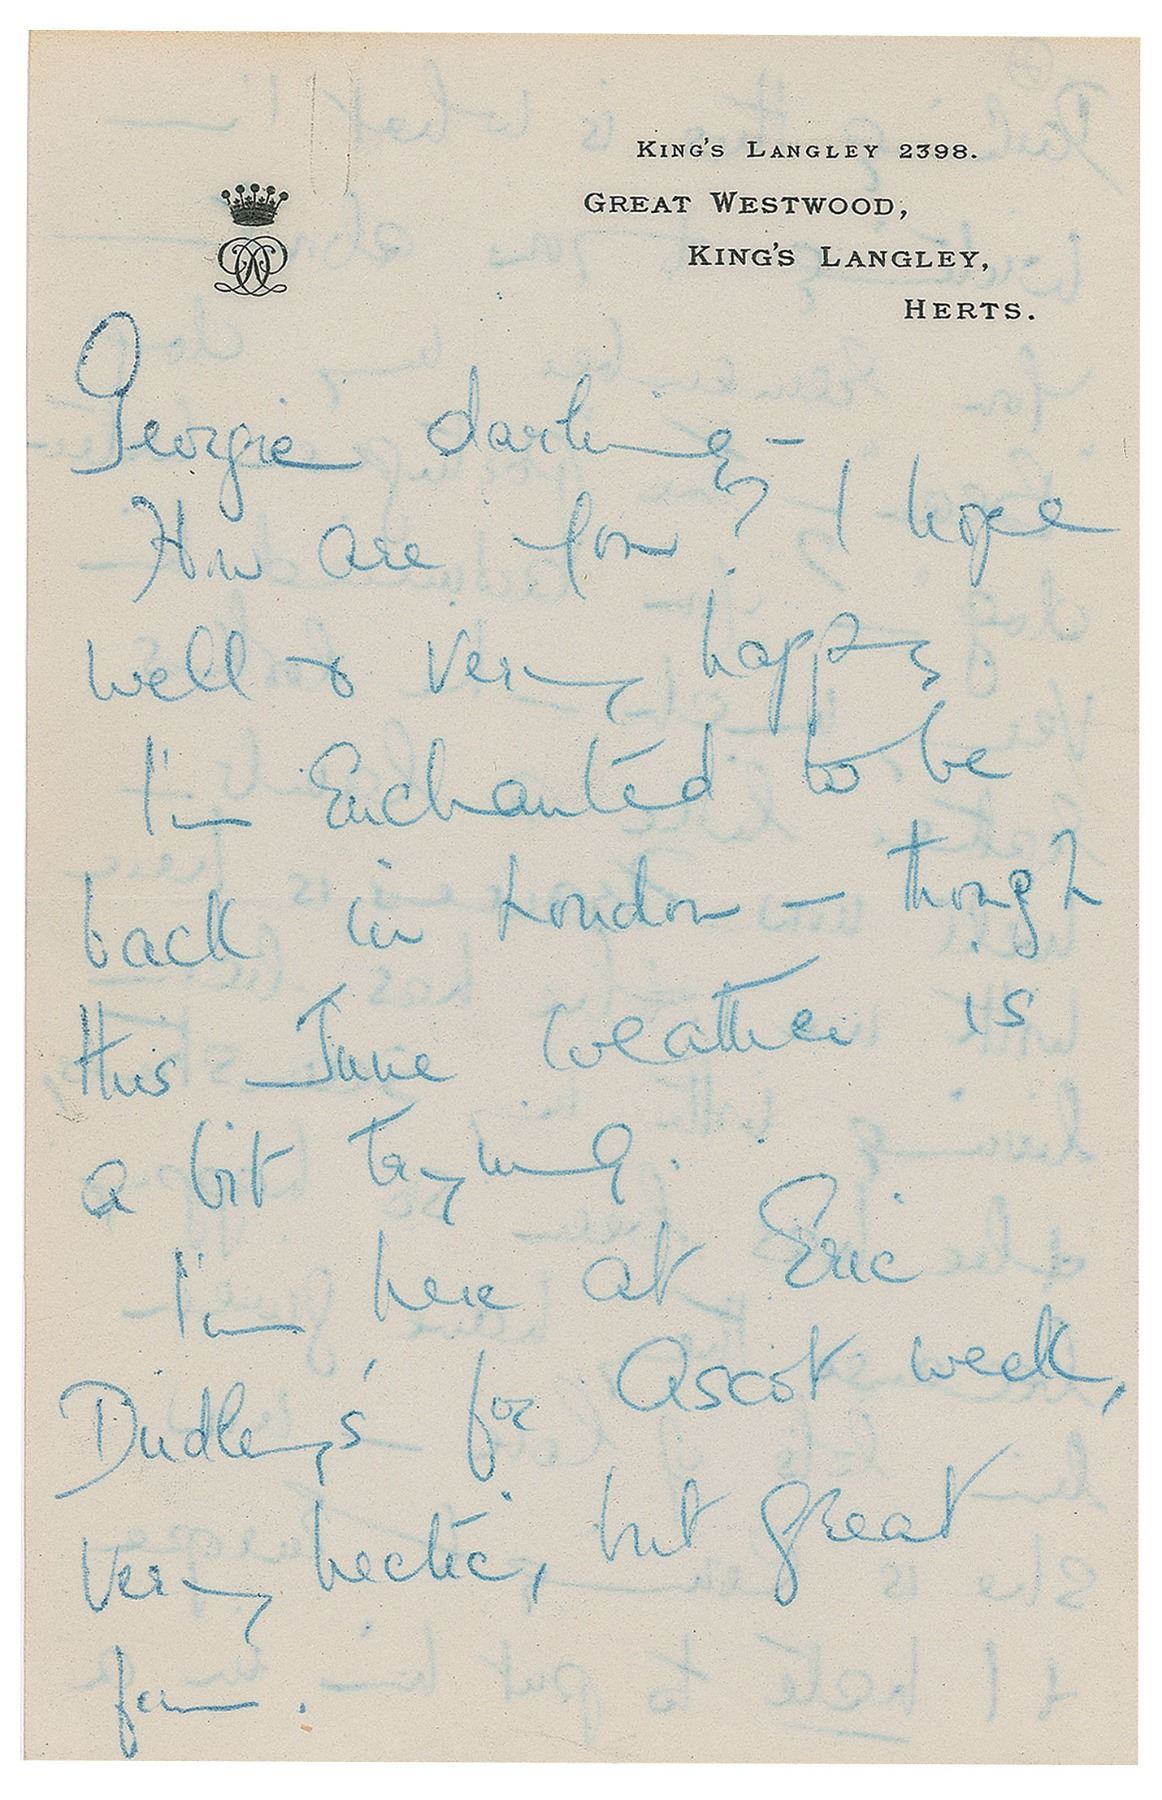 KING'S LANGLEY 2398.
GREAT WESTWOOD,
KING'S LANGLEY,
HERTS.
Georgie darling –
How are you? I hope
well & very happy
I'm Enchanted to be
back in London – though
this June weather is
a bit trying.
I'm here at Eric
Dudley's for Ascot week,
very hectic, but great
fun.